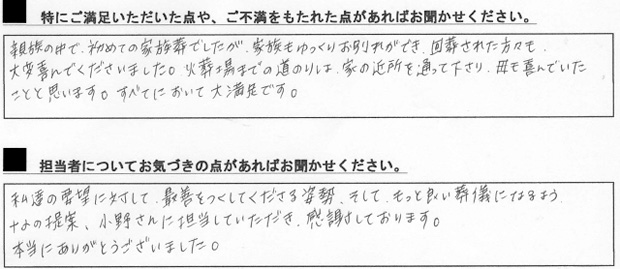 特にご満足いただいた点や、ご不満をもたれた点があればお聞かせください。
親族の中で、初めての家族葬でしたが、家族もゆっくりお別れができ、回葬された方々も、
大変喜んでくださいました。火葬場までの道のりは、家の近所を通って下さり、母も喜んでいた
ことと思います。すべてにおいて大満足です。
担当者についてお気づきの点があればお聞かせください。
私達の要望に対して、最善をつくしてくださる姿勢、そして、もっと良い葬儀になるよう
の提案、小野さんに担当していただき、感謝しております。
本当にありがとうございました。